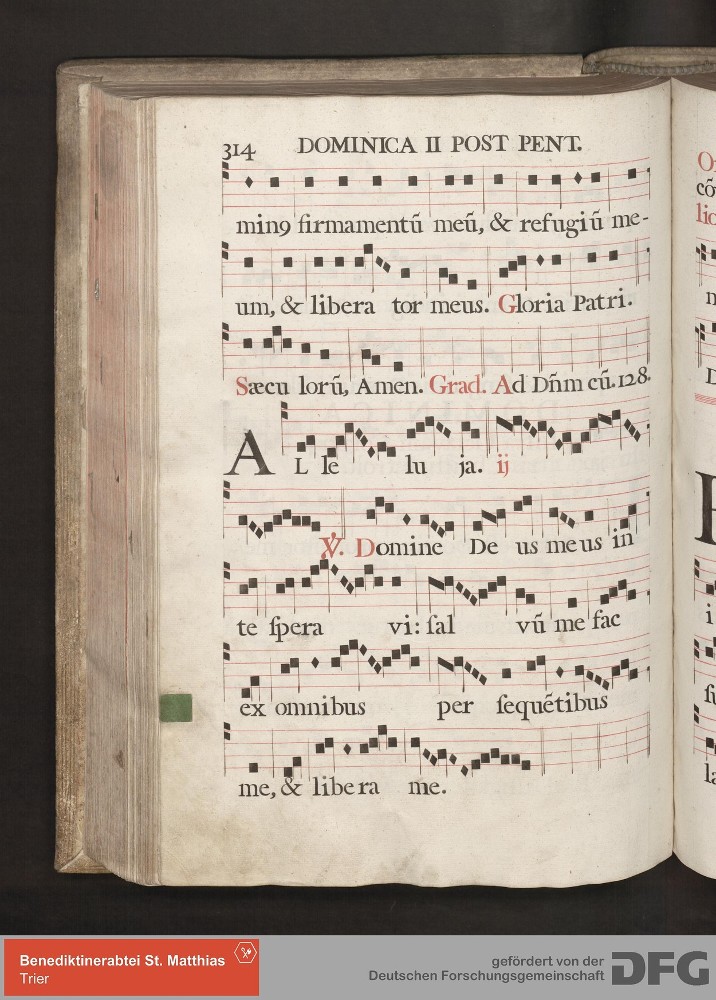 314 DOMINICA II POST PENT.
min9 firmamentũ meũ, & refugiũ me-
um, & libera tor meus. Gloria Patri.
Sæcu lorũ, Amen. Grad. Ad Dñm cũ. 128.
AL le lu ja. ij
℣. Domine De us meus in
te spera vi: sal vũ me fac
ex omnibus per sequẽtibus
me, & libera me.
Benediktinerabtei St. Matthias
Trier
gefördert von der
Deutschen Forschungsgemeinschaft
DFG